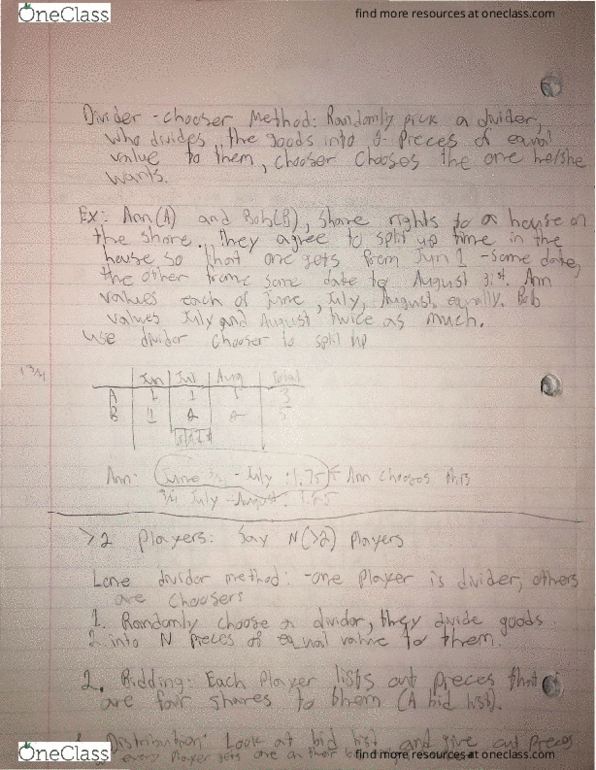 OneClass
find more resources at oneclass.com
Divider - chooser Method: Randomly pick a divider,
who divides the goods into 2 pieces of equal
value to them, chooser chooses the one he/she
wants.
Ex: Ann(A) and Bob(B), share rights to a house on
the shore. They agree to split up time in the
house so that one gets from Jun 1 - some date,
the other from some date to August 31st. Ann
values each of June, July, August equally. Bob
values July and August twice as much.
use divider chooser to split up
Jun Jul Aug total
A 1 1 1 3
B 1 2 2 5
Ann: June - July : 1.75 Ann chooses this
3/4 July - August: 1.25
>2 Players: Say N(>2) Players
Lone divider method: -one player is divider, others
are choosers
1. Randomly choose a dividor, they divide goods
2. into N pieces of equal value to them.
2. Bidding: Each Player lists out pieces that
are fair shares to them (A bid list).
Distribution: Look at bid list and give out pieces
so every player gets one on their
OneClass
find more resources at oneclass.com